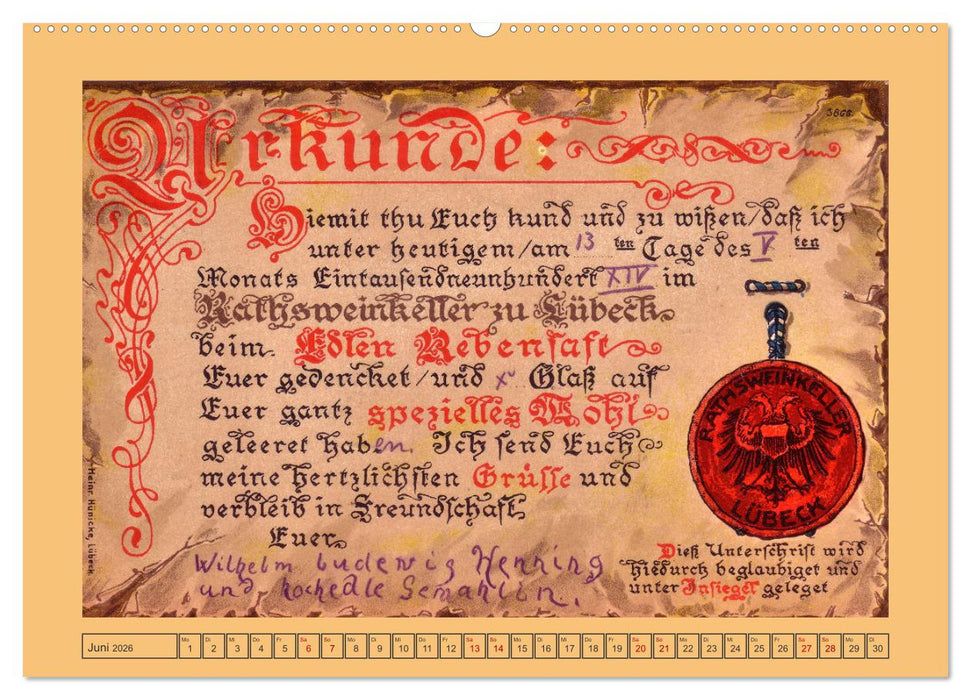 Urkunde:
3868.
Hiemit thu Euch kund und zu wißen/daß ich
unter heutigem/am 13 ten Tage des V ten
Monats Eintausendneunhundert XIV im
Rathsweinkeller zu Lübeck
beim Edlen Rebensaft
Euer gedencket/und x Glaß auf
Euer gantz spezielles Wohl
geleeret haben. Ich send Euch
meine hertzlichsten Grüsse und
verbleib in Freundschaft
Euer
Wilhelm Ludewig Henning
und hochedle Gemahlin.
RATHSWEINKELLER
LÜBECK
Dieß Unterschrift wird
hiedurch beglaubiget und
unter Insiegel geleget
Heinr. Hünicke, Lübeck.
Juni 2026
Mo Di Mi Do Fr Sa So Mo Di Mi Do Fr Sa So Mo Di Mi Do Fr Sa So Mo Di Mi Do Fr Sa So Mo Di
1 2 3 4 5 6 7 8 9 10 11 12 13 14 15 16 17 18 19 20 21 22 23 24 25 26 27 28 29 30